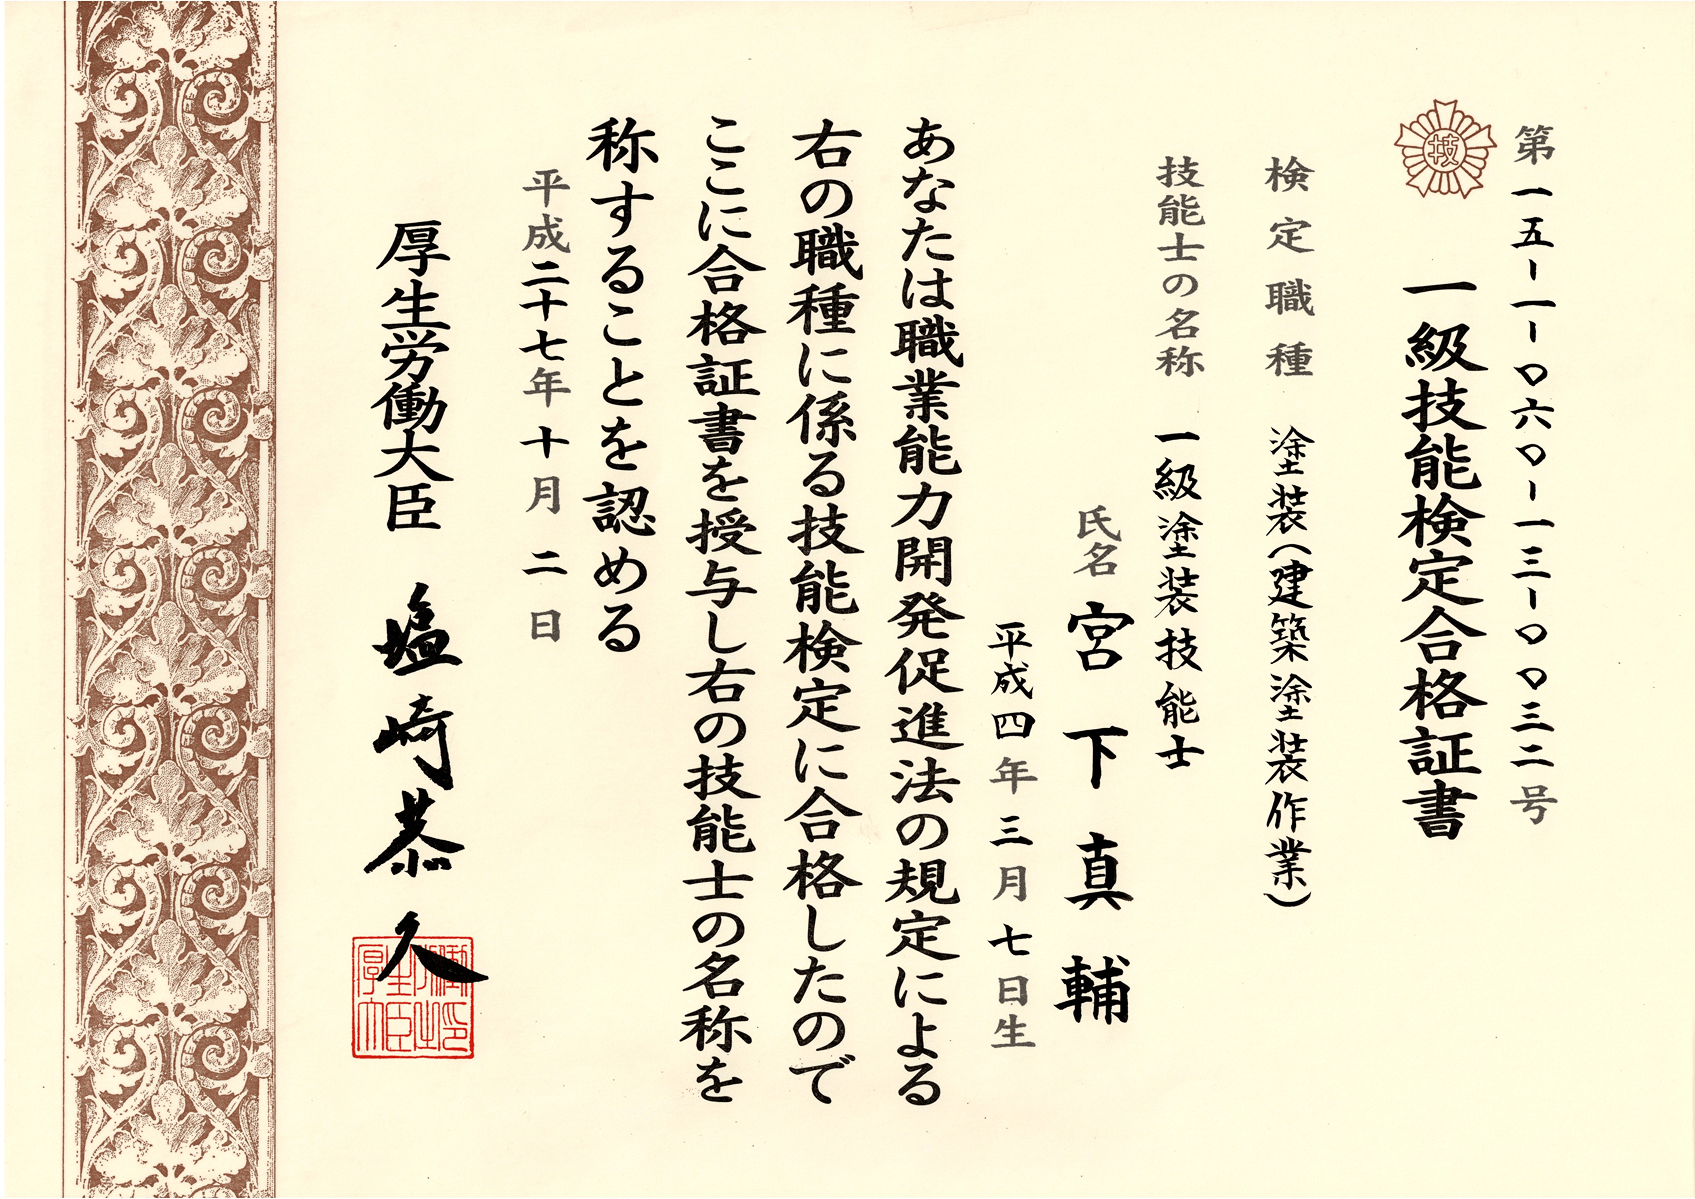 第一五-一-〇六〇-一三-〇〇三二号
技
一級技能検定合格証書
検定職種 塗装(建築塗装作業)
技能士の名称 一級塗装技能士
氏名 宮下真輔
平成四年三月七日生
あなたは職業能力開発促進法の規定による
右の職種に係る技能検定に合格したので
ここに合格証書を授与し右の技能士の名称を
称することを認める
平成二十七年十月二日
厚生労働大臣 塩崎恭久
厚生労働大臣之印